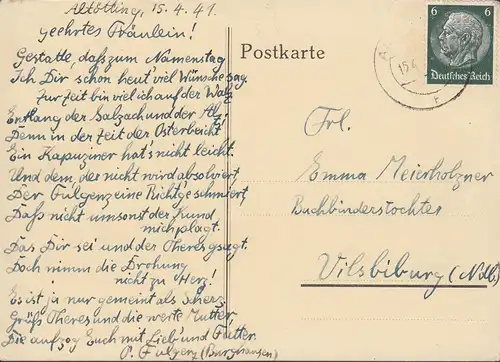 Altötting, 15.4.41.
Geehrtes Fräulein!
Gestatte, daß zum Namenstag
Ich Dir schon heut' viel Wünsche sag.
Zur Zeit bin viel ich auf der Walz
Entlang der Salzach und der Alz;
Denn in der Zeit der Osterbeicht
Ein Kapuziner hat's nicht leicht.
Und dem, der nicht wird absolviert,
Der Fulgenz eine Richt'ge schmiert,
Daß nicht umsonst der Kund
mich plagt.
Das Dir sei und der Theres gsagt.
Doch nimm die Drohung
nicht zu Herz!
Es ist ja nur gemeint als Scherz,
Grüß Theres und die werte Mutter,
Die aufzog Euch mit Lieb' und Futter.
P. Fulgenz (Burghausen)
Postkarte
6 6
Deutsches Reich
15.4
Frl.
Emma Meierholzner
Buchbinderstochter
Vilsbiburg (Ndb.)